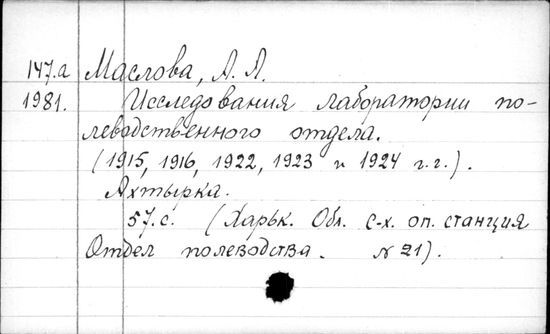 147.а Маслова, А. А.
1981. Исследования лаборатории по-
леводственного отдела.
(1915, 1916, 1922, 1923 и 1924 г.г.).
Ахтырка.
57.с. (Харьк. Обл. с-х. оп. станция
Отдел полеводства. N 21).